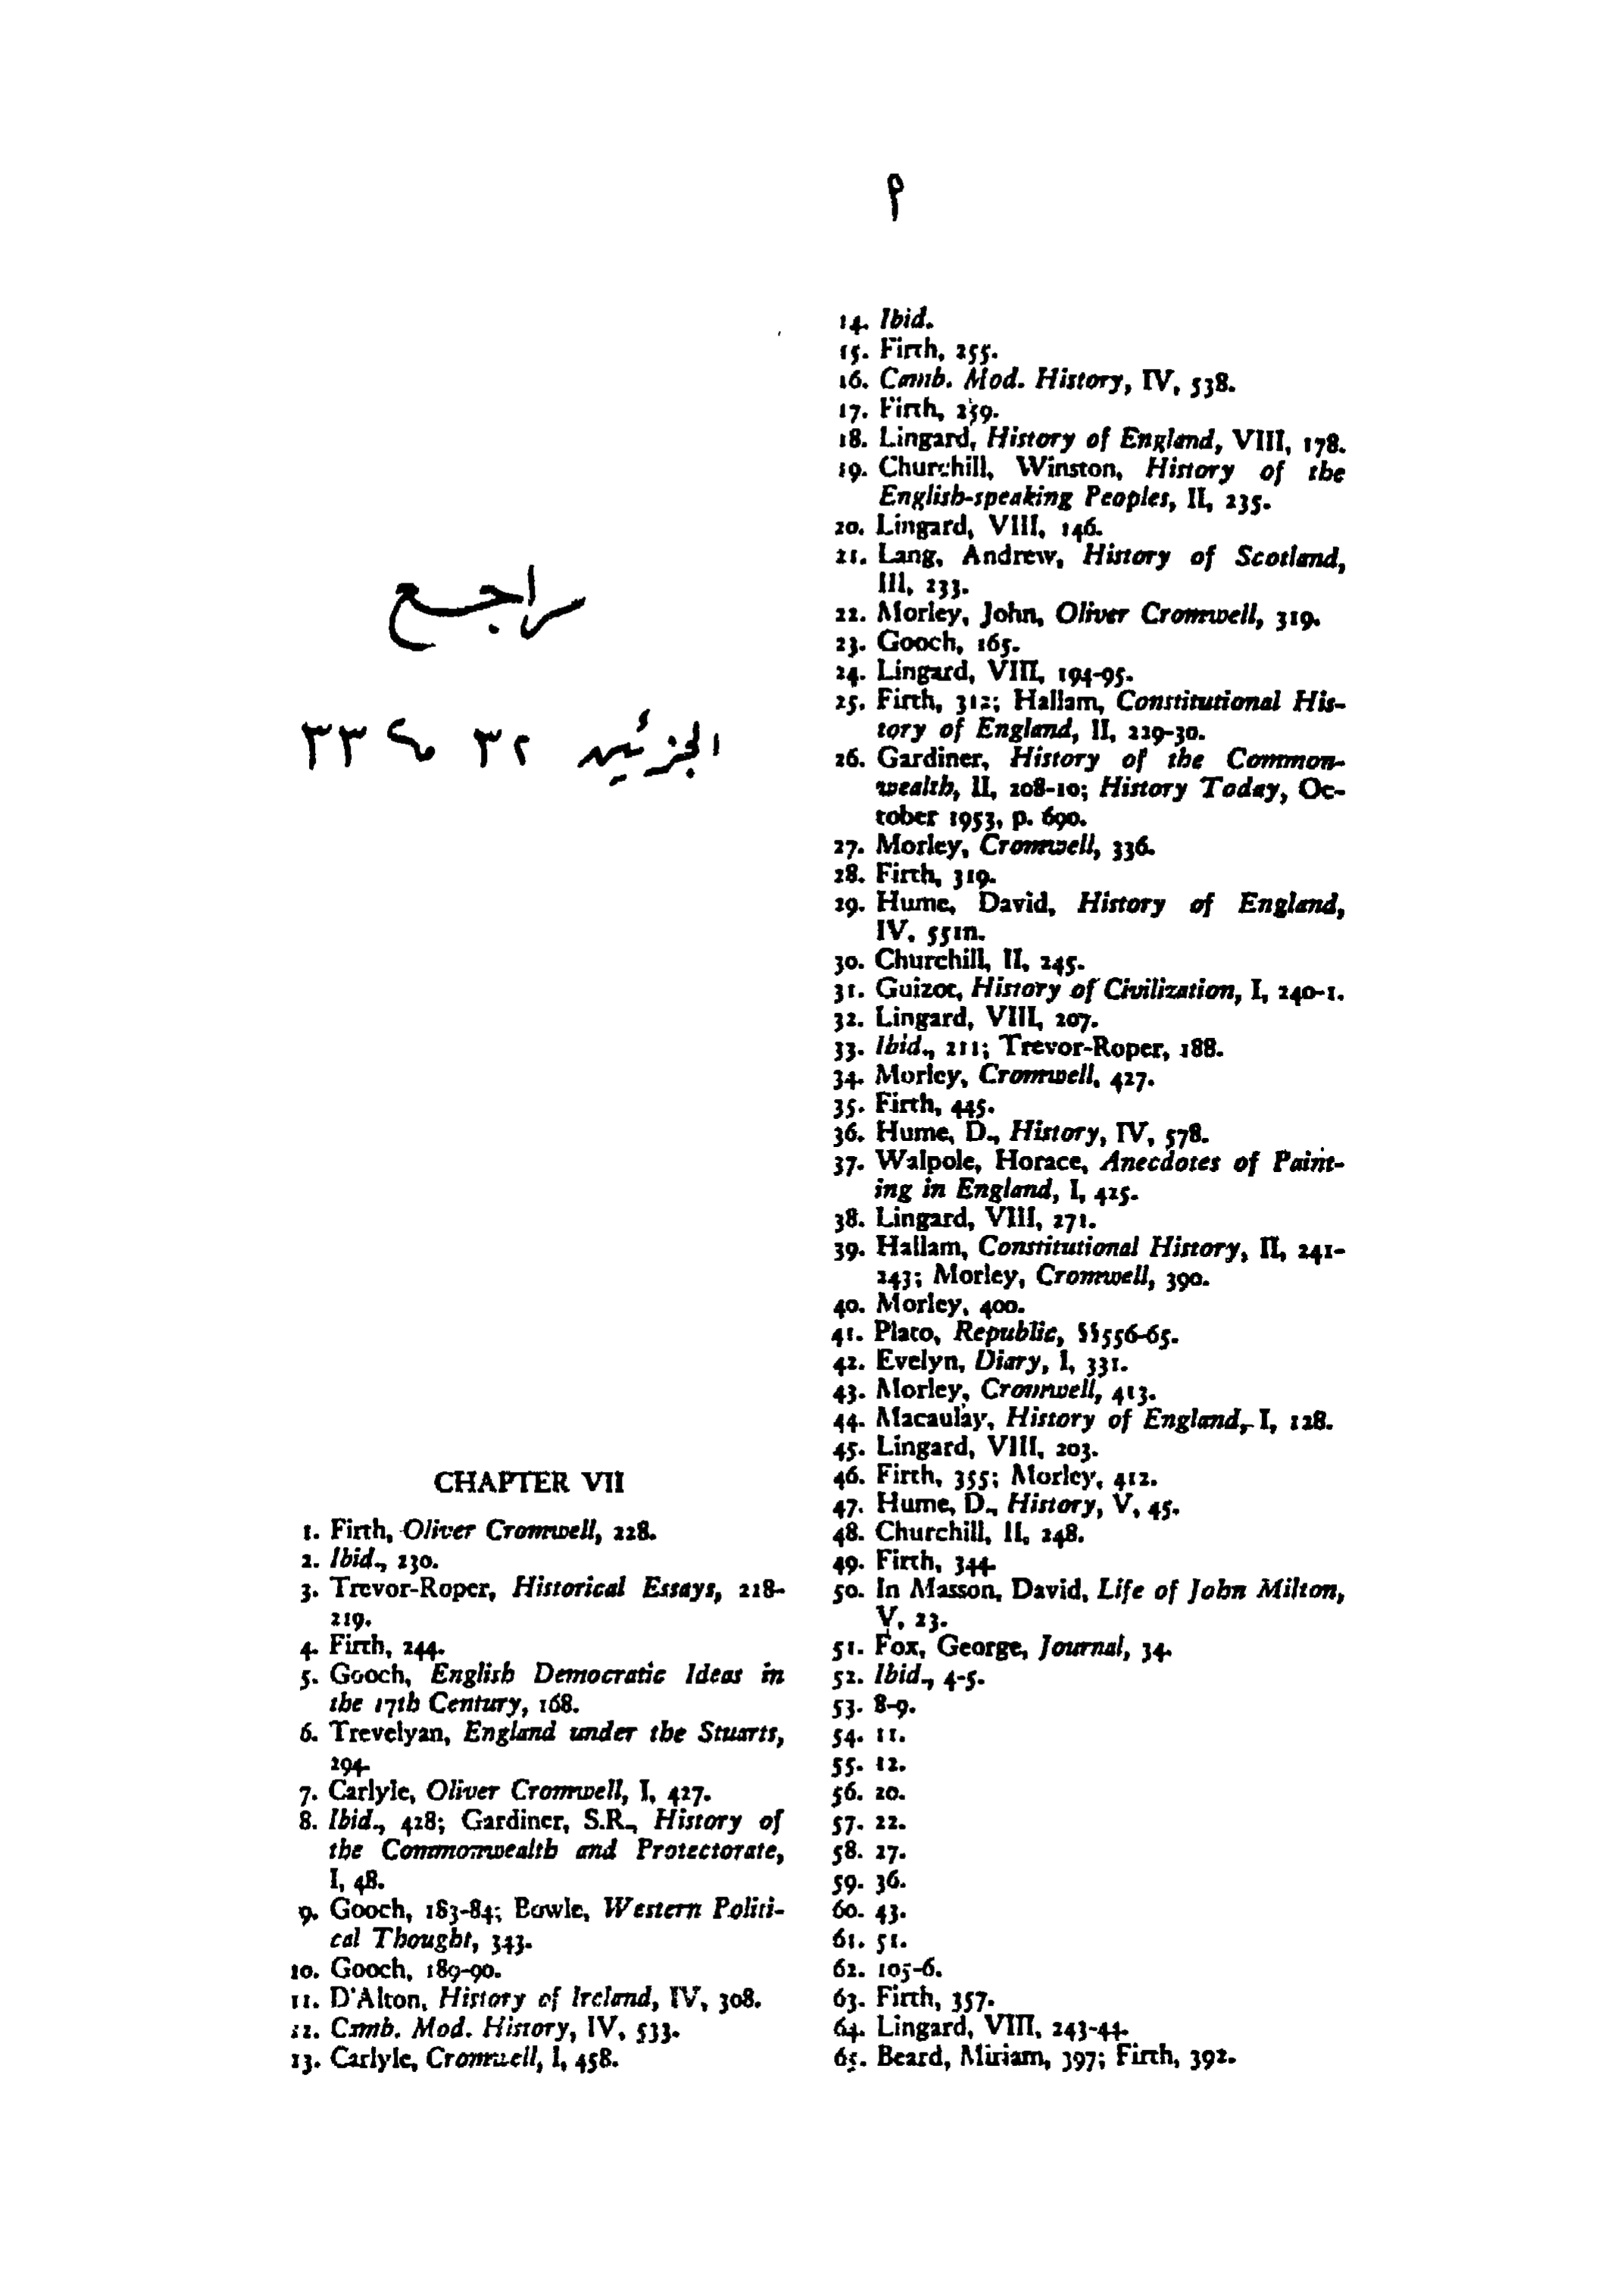 ٩
مراجع
الجزئين ٣٢ ، ٣٣
CHAPTER VII
1. Firth, Oliver Cromwell, 228.
2. Ibid., 230.
3. Trevor-Roper, Historical Essays, 218-
219.
4. Firth, 244.
5. Gooch, English Democratic Ideas in
the 17th Century, 168.
6. Trevelyan, England under the Stuarts,
294.
7. Carlyle, Oliver Cromwell, I, 427.
8. Ibid., 428; Gardiner, S.R., History of
the Commonwealth and Protectorate,
I, 48.
9. Gooch, 183-84; Bowle, Western Politi-
cal Thought, 343.
10. Gooch, 189-90.
11. D'Alton, History of Ireland, IV, 308.
12. Camb. Mod. History, IV, 533.
13. Carlyle, Cromwell, I, 458.
14. Ibid.
15. Firth, 255.
16. Camb. Mod. History, IV, 538.
17. Firth, 259.
18. Lingard, History of England, VIII, 178.
19. Churchill, Winston, History of the
English-speaking Peoples, II, 235.
20. Lingard, VIII, 146.
21. Lang, Andrew, History of Scotland,
III, 233.
22. Morley, John, Oliver Cromwell, 319.
23. Gooch, 165.
24. Lingard, VIII, 194-95.
25. Firth, 312; Hallam, Constitutional His-
tory of England, II, 229-30.
26. Gardiner, History of the Common-
wealth, II, 208-10; History Today, Oc-
tober 1953, p. 690.
27. Morley, Cromwell, 336.
28. Firth, 319.
29. Hume, David, History of England,
IV, 551n.
30. Churchill, II, 245.
31. Guizot, History of Civilization, I, 240-1.
32. Lingard, VIII, 207.
33. Ibid., 211; Trevor-Roper, 188.
34. Morley, Cromwell, 427.
35. Firth, 445.
36. Hume, D., History, IV, 578.
37. Walpole, Horace, Anecdotes of Paint-
ing in England, I, 425.
38. Lingard, VIII, 271.
39. Hallam, Constitutional History, II, 241-
243; Morley, Cromwell, 390.
40. Morley, 400.
41. Plato, Republic, §§556-65.
42. Evelyn, Diary, I, 331.
43. Morley, Cromwell, 413.
44. Macaulay, History of England, I, 128.
45. Lingard, VIII, 203.
46. Firth, 355; Morley, 412.
47. Hume, D., History, V, 45.
48. Churchill, II, 248.
49. Firth, 344.
50. In Masson, David, Life of John Milton,
V, 23.
51. Fox, George, Journal, 34.
52. Ibid., 4-5.
53. 8-9.
54. 11.
55. 12.
56. 20.
57. 22.
58. 27.
59. 36.
60. 43.
61. 51.
62. 105-6.
63. Firth, 357.
64. Lingard, VIII, 243-44.
65. Beard, Miriam, 397; Firth, 392.